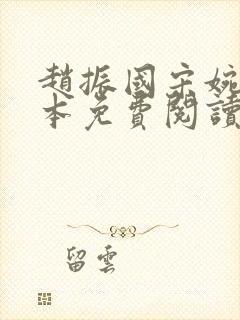 趙振國宋婉
本免費閱讀
留雲